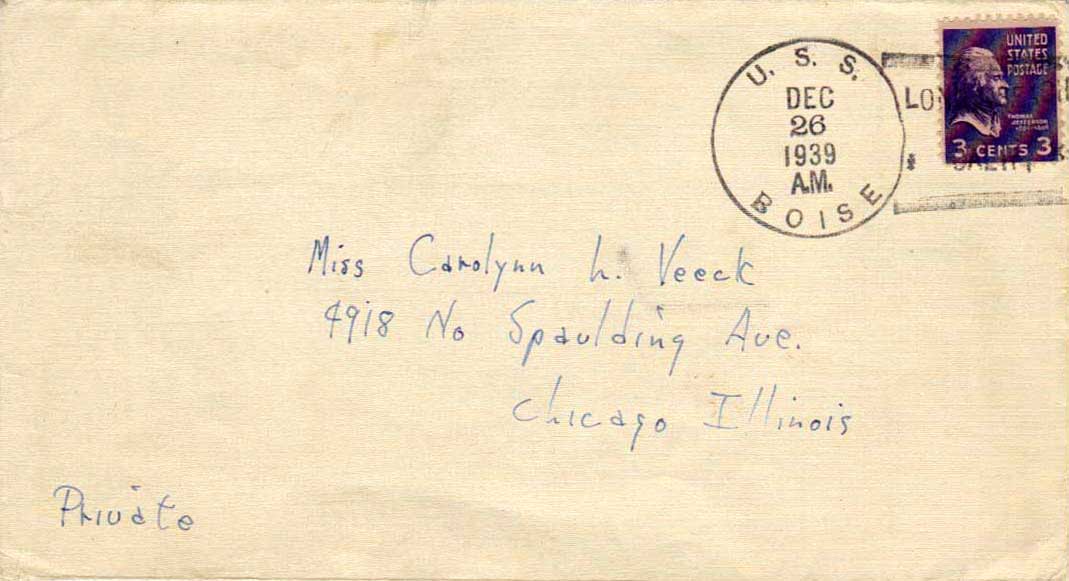 U. S. S.
DEC
26
1939
A.M.
BOISE
UNITED
STATES
POSTAGE
THOMAS
JEFFERSON
3 CENTS 3
Miss Carolynn L. Veeck
4918 No Spaulding Ave.
Chicago Illinois
Private